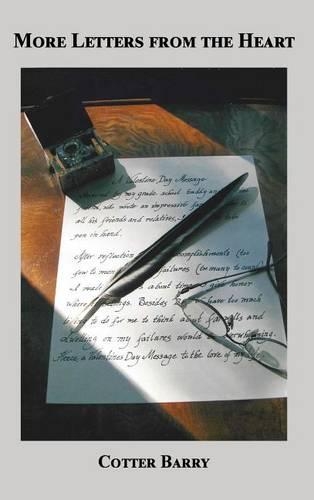 MORE LETTERS FROM THE HEART
Valentine Day Message
by my grade school buddy and
who wrote an impressive
all his friends and relatives, I
pen in hand.
After reflection accomplishments (too
few to failures (too many to count)
I about time I give honor
where Besides have too much
to do for me to think about faults and
dwelling on my failures would be overwhelming.
Hence, a Valentines Day Message to the love of my life.
COTTER BARRY